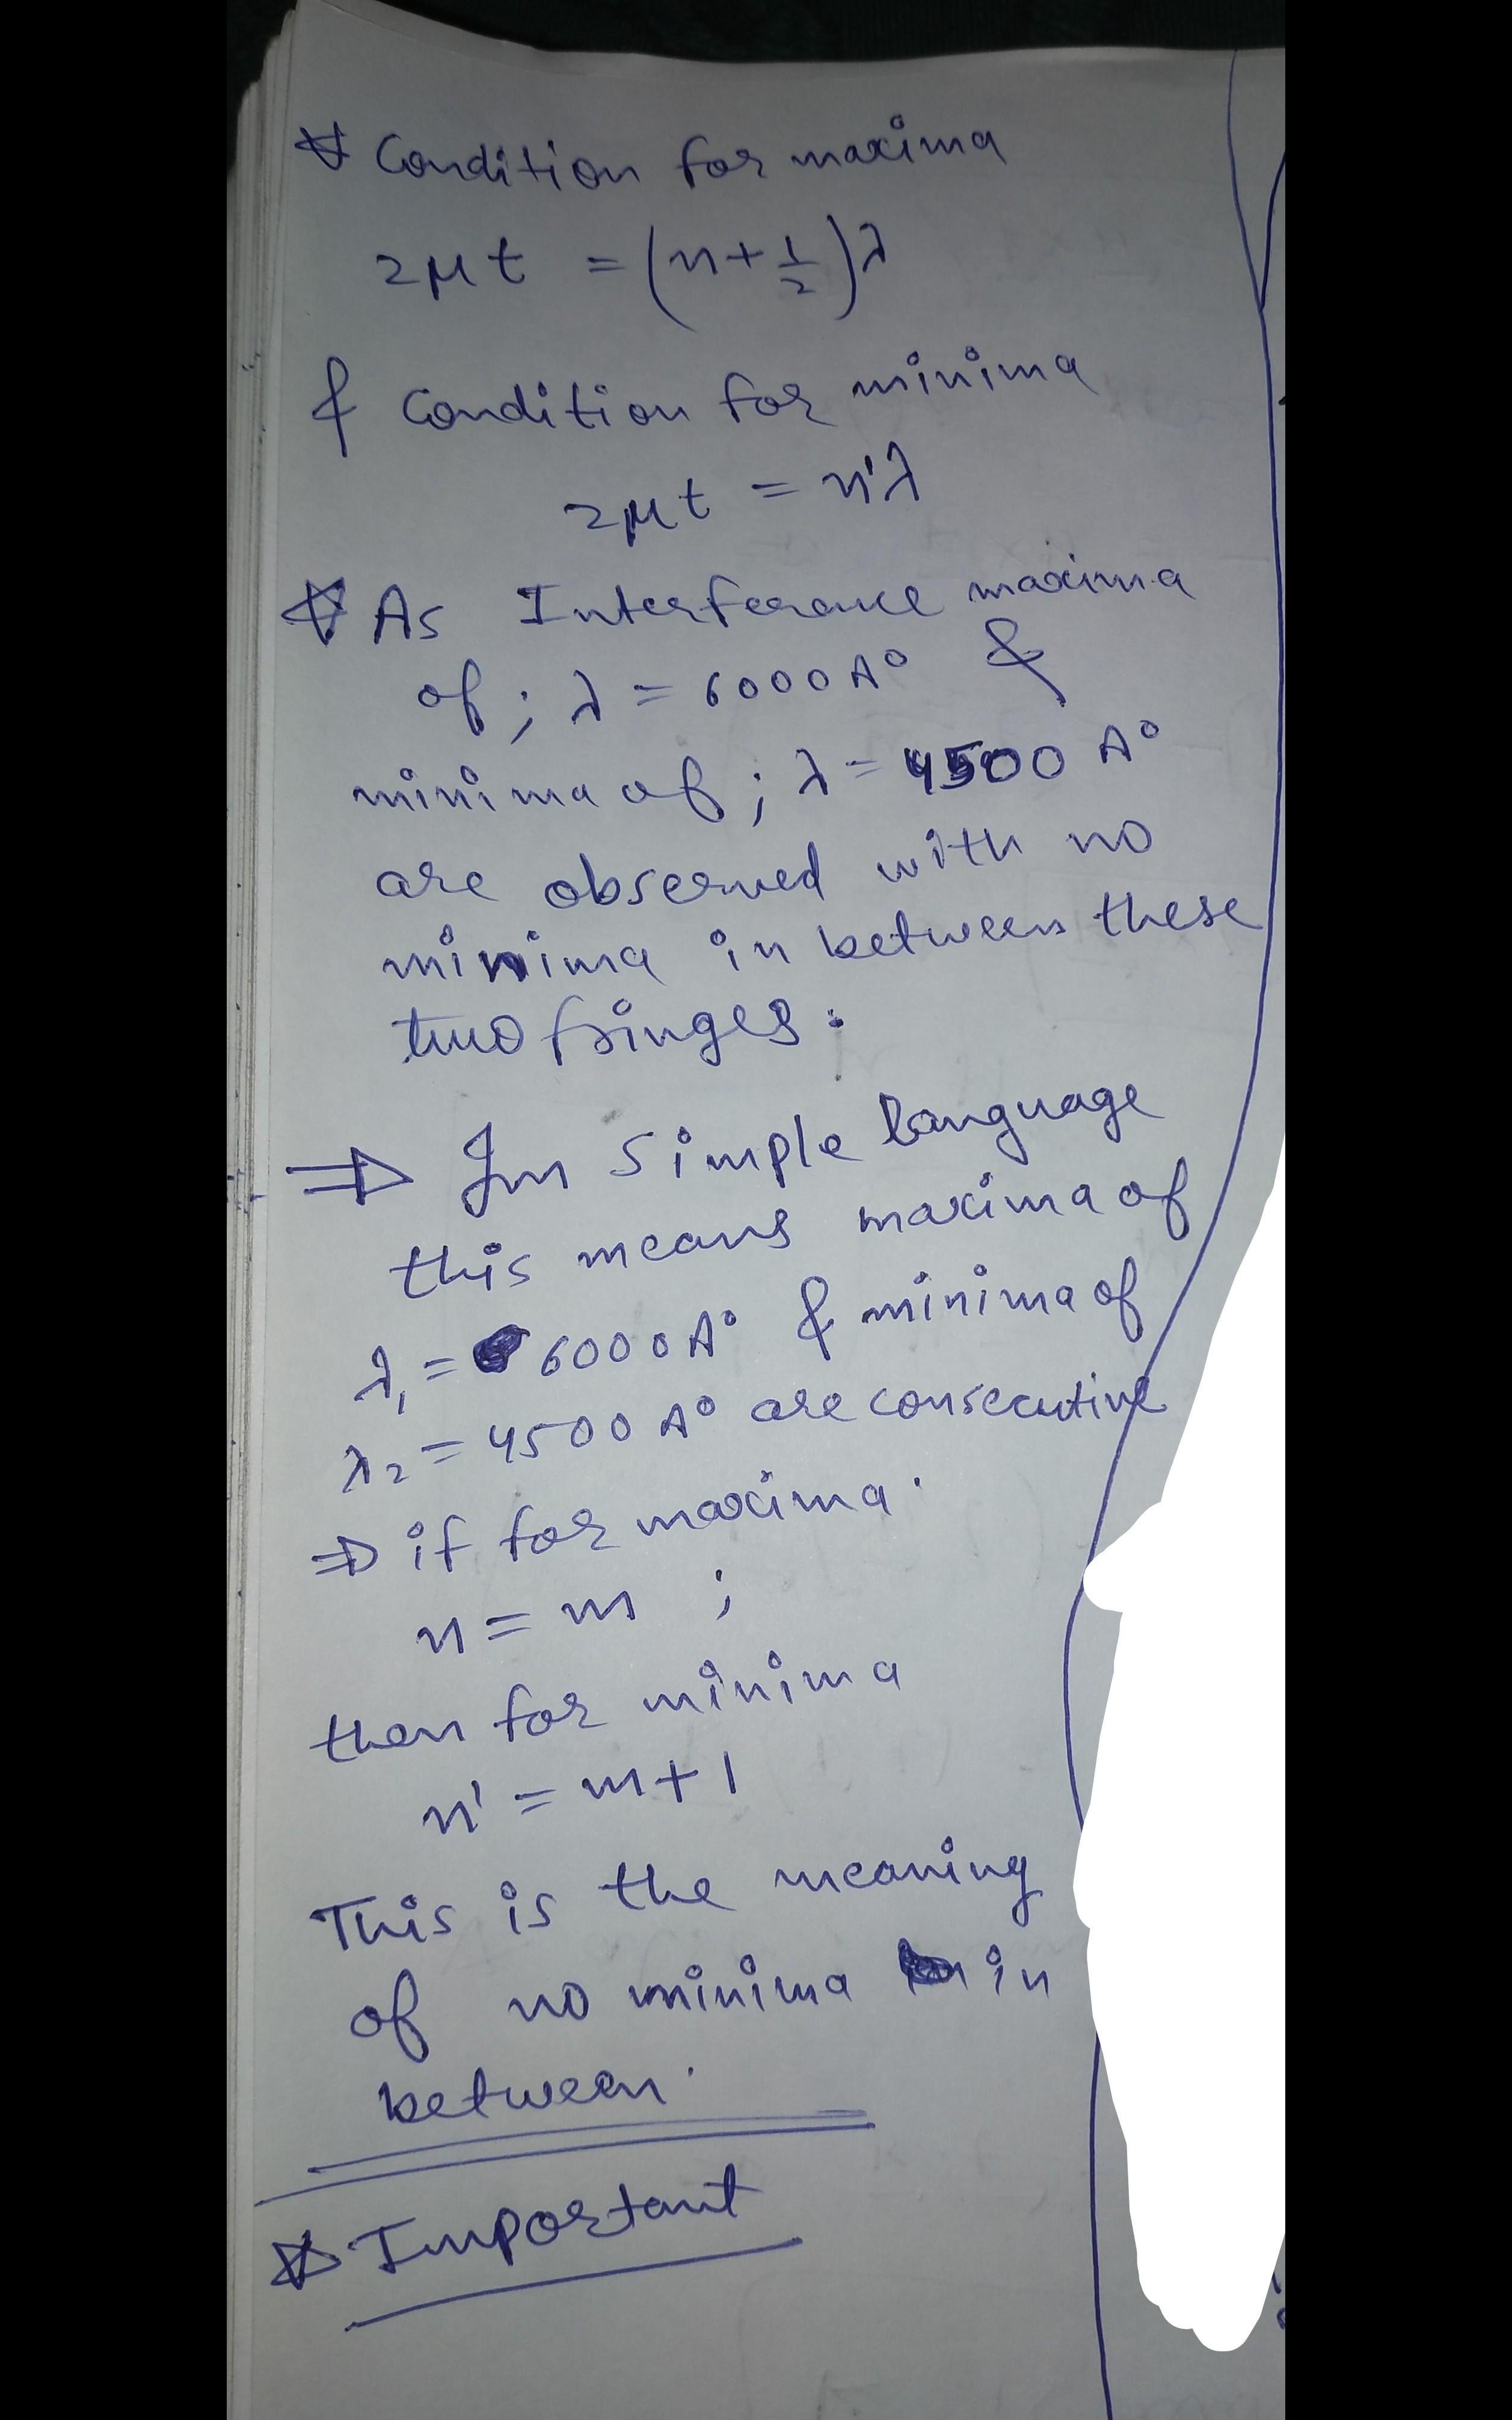 Condition for maxima
2μt = (n+1/2)λ
& Condition for minima
2μt = n'λ
As Interference maxima
of ; λ = 6000A° &
minima of ; λ = 4500 A°
are observed with no
minima in between these
two fringes.
⇒ In Simple language
this means maxima of
λ₁ = 6000A° & minima of
λ₂ = 4500A° are consecutive
⇒ if for maxima
n = m ;
then for minima
n' = m+1
This is the meaning
of no minima in
between.
Important